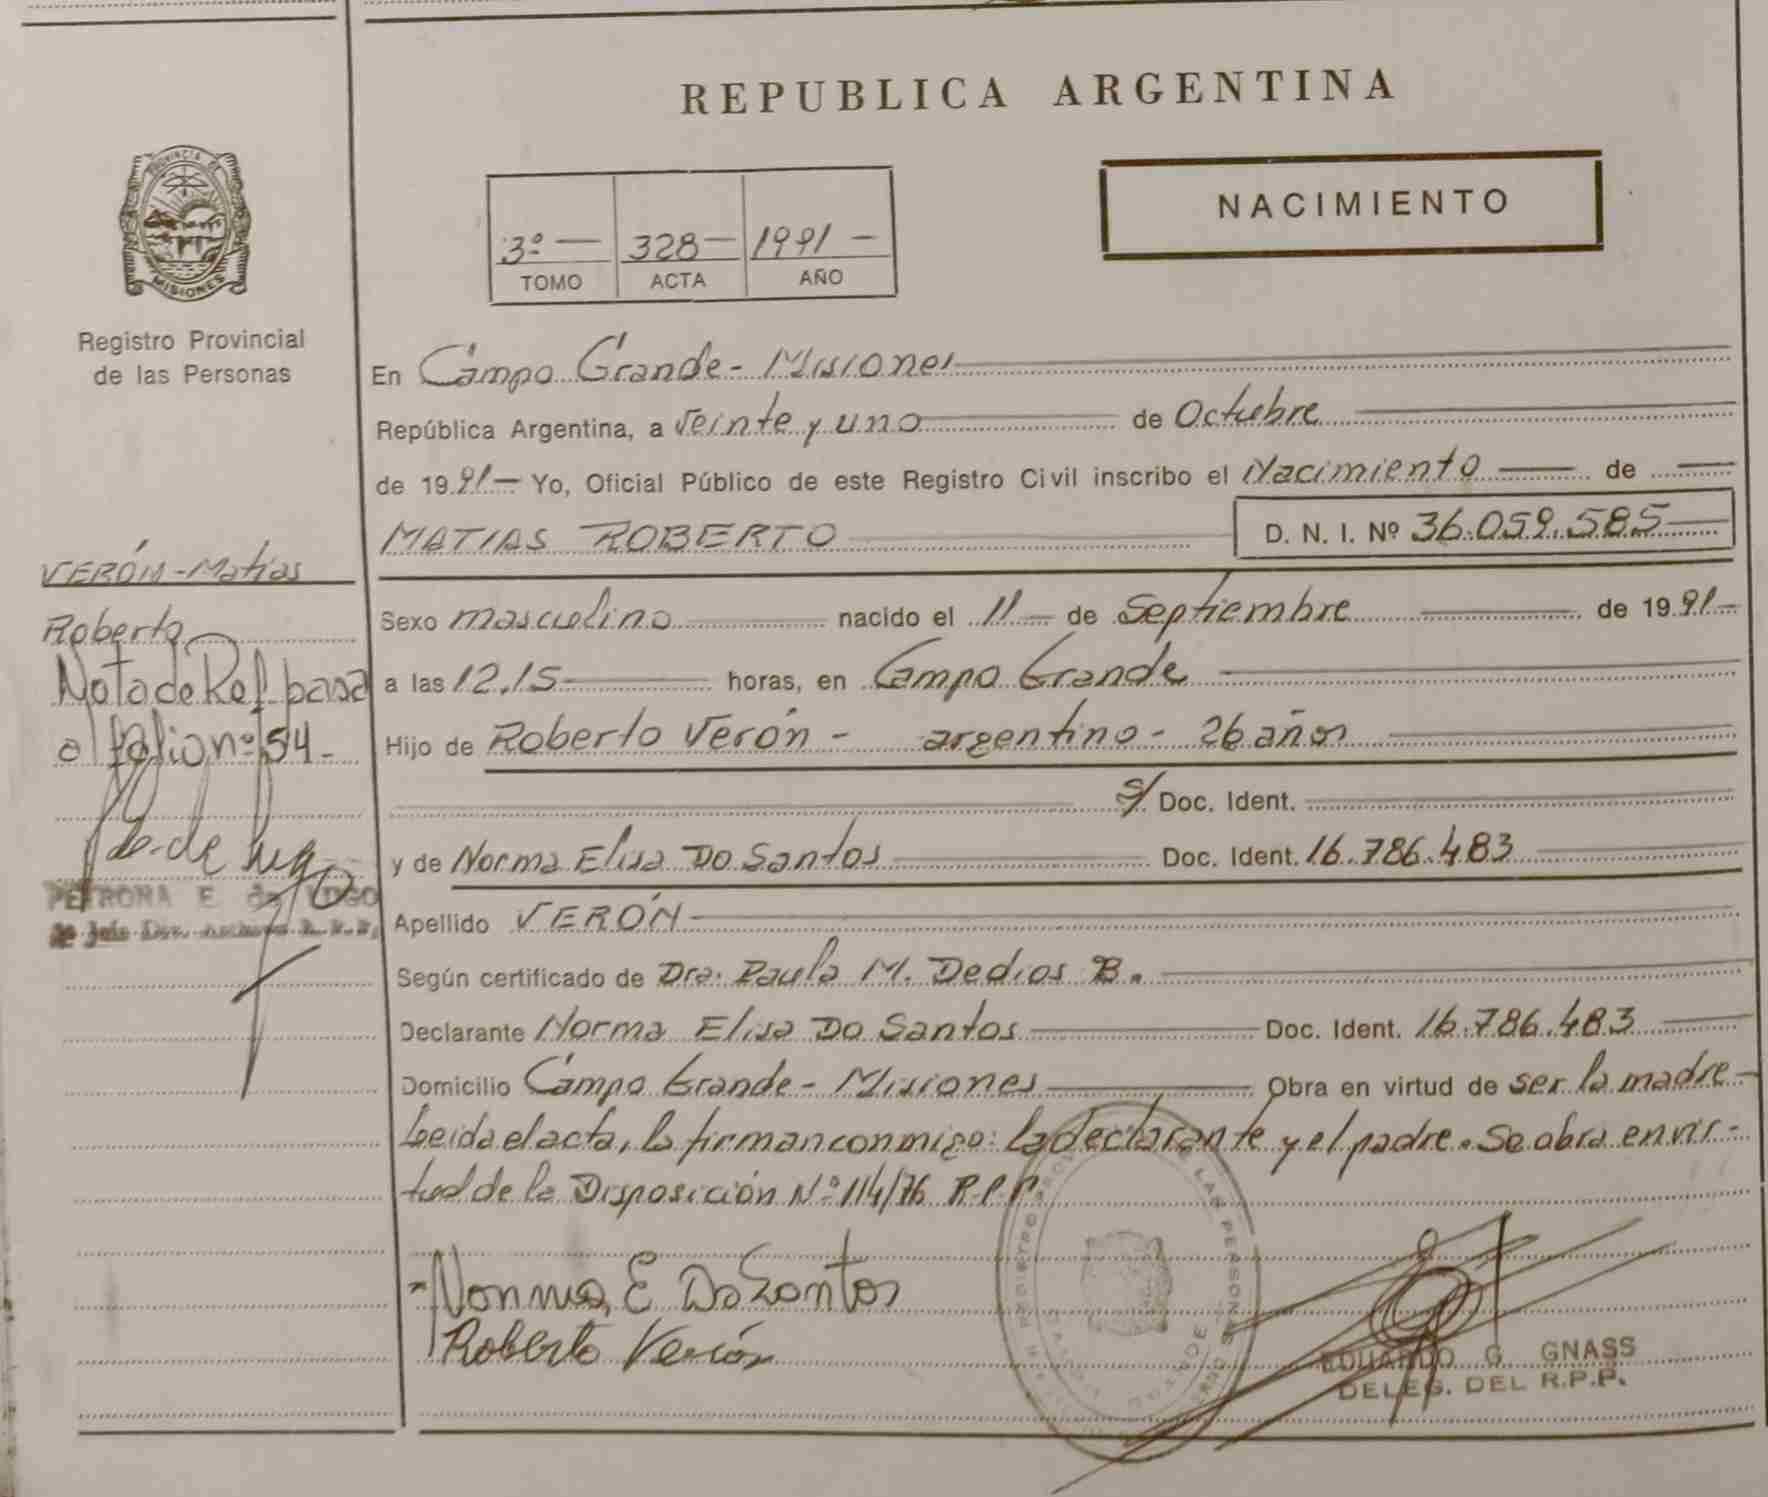 REPUBLICA ARGENTINA
PROVINCIA DE
MISIONES
Registro Provincial
de las Personas
3º — 328 — 1991 —
TOMO ACTA AÑO
NACIMIENTO
En Campo Grande - Misiones
República Argentina, a Veinte y uno de Octubre
de 1991 - Yo, Oficial Público de este Registro Civil inscribo el Nacimiento — de —
MATIAS ROBERTO D. N. I. Nº 36.059.585
Sexo masculino nacido el 11 — de Septiembre de 1991 -
a las 12.15 horas, en Campo Grande
Hijo de Roberto Verón - argentino - 26 años
S/ Doc. Ident.
y de Norma Elisa Do Santos Doc. Ident. 16.786.483
Apellido VERÓN
Según certificado de Dra. Paula M. Dedios B.
Declarante Norma Elisa Do Santos Doc. Ident. 16.786.483
Domicilio Campo Grande - Misiones Obra en virtud de ser la madre -
Leida el acta, la firman conmigo: la declarante y el padre. Se obra en vir-
tud de la Disposición Nº 114/76 R.P.P.
Norma E Do Santos
Roberto Verón
EDUARDO G. GNASS
DELEG. DEL R.P.P.
VERÓN - Matias
Roberto
Nota de Ref. pasa
al folio nº 54 -
PETRONA E. de LUGO